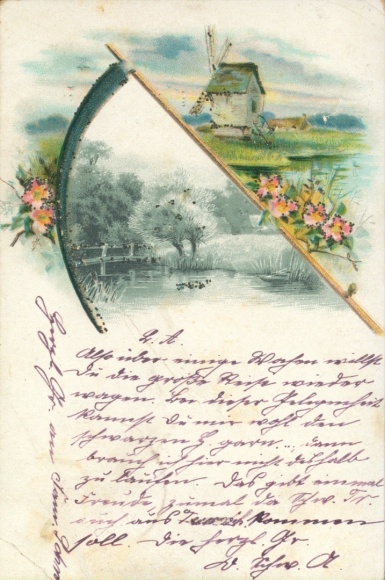 L. A.
Also über einige Wochen willst
Du die große Reise wieder
wagen. Bei dieser Gelegenheit
kannst Du mir wohl den
schwarzen garn dann
brauch ich hier nicht deshalb
zu laufen. Das gibt einmal
Freude zumal da Schw. Tr.
auch aus kommen
soll. Die herzl. Gr.
D. Schw. A.
Herzl. Gr. an